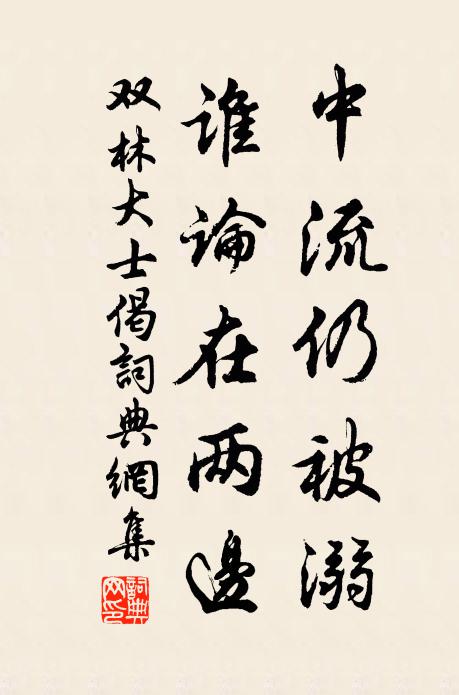 中流仍被溺
谁論在两邊
双林大士偈詞典網集
詞典网印